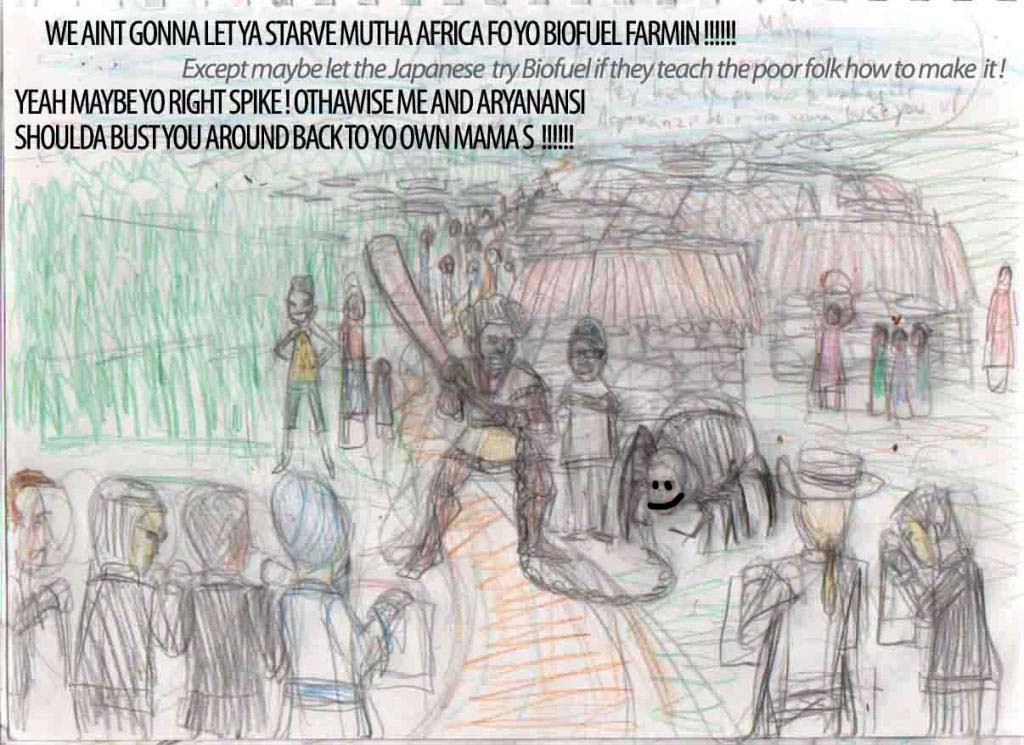 WE AINT GONNA LET YA STARVE MUTHA AFRICA FO YO BIOFUEL FARMIN !!!!!!
Except maybe let the Japanese try Biofuel if they teach the poor folk how to make it !
YEAH MAYBE YO RIGHT SPIKE ! OTHAWISE ME AND ARYANANSI
SHOULDA BUST YOU AROUND BACK TO YO OWN MAMA S !!!!!!